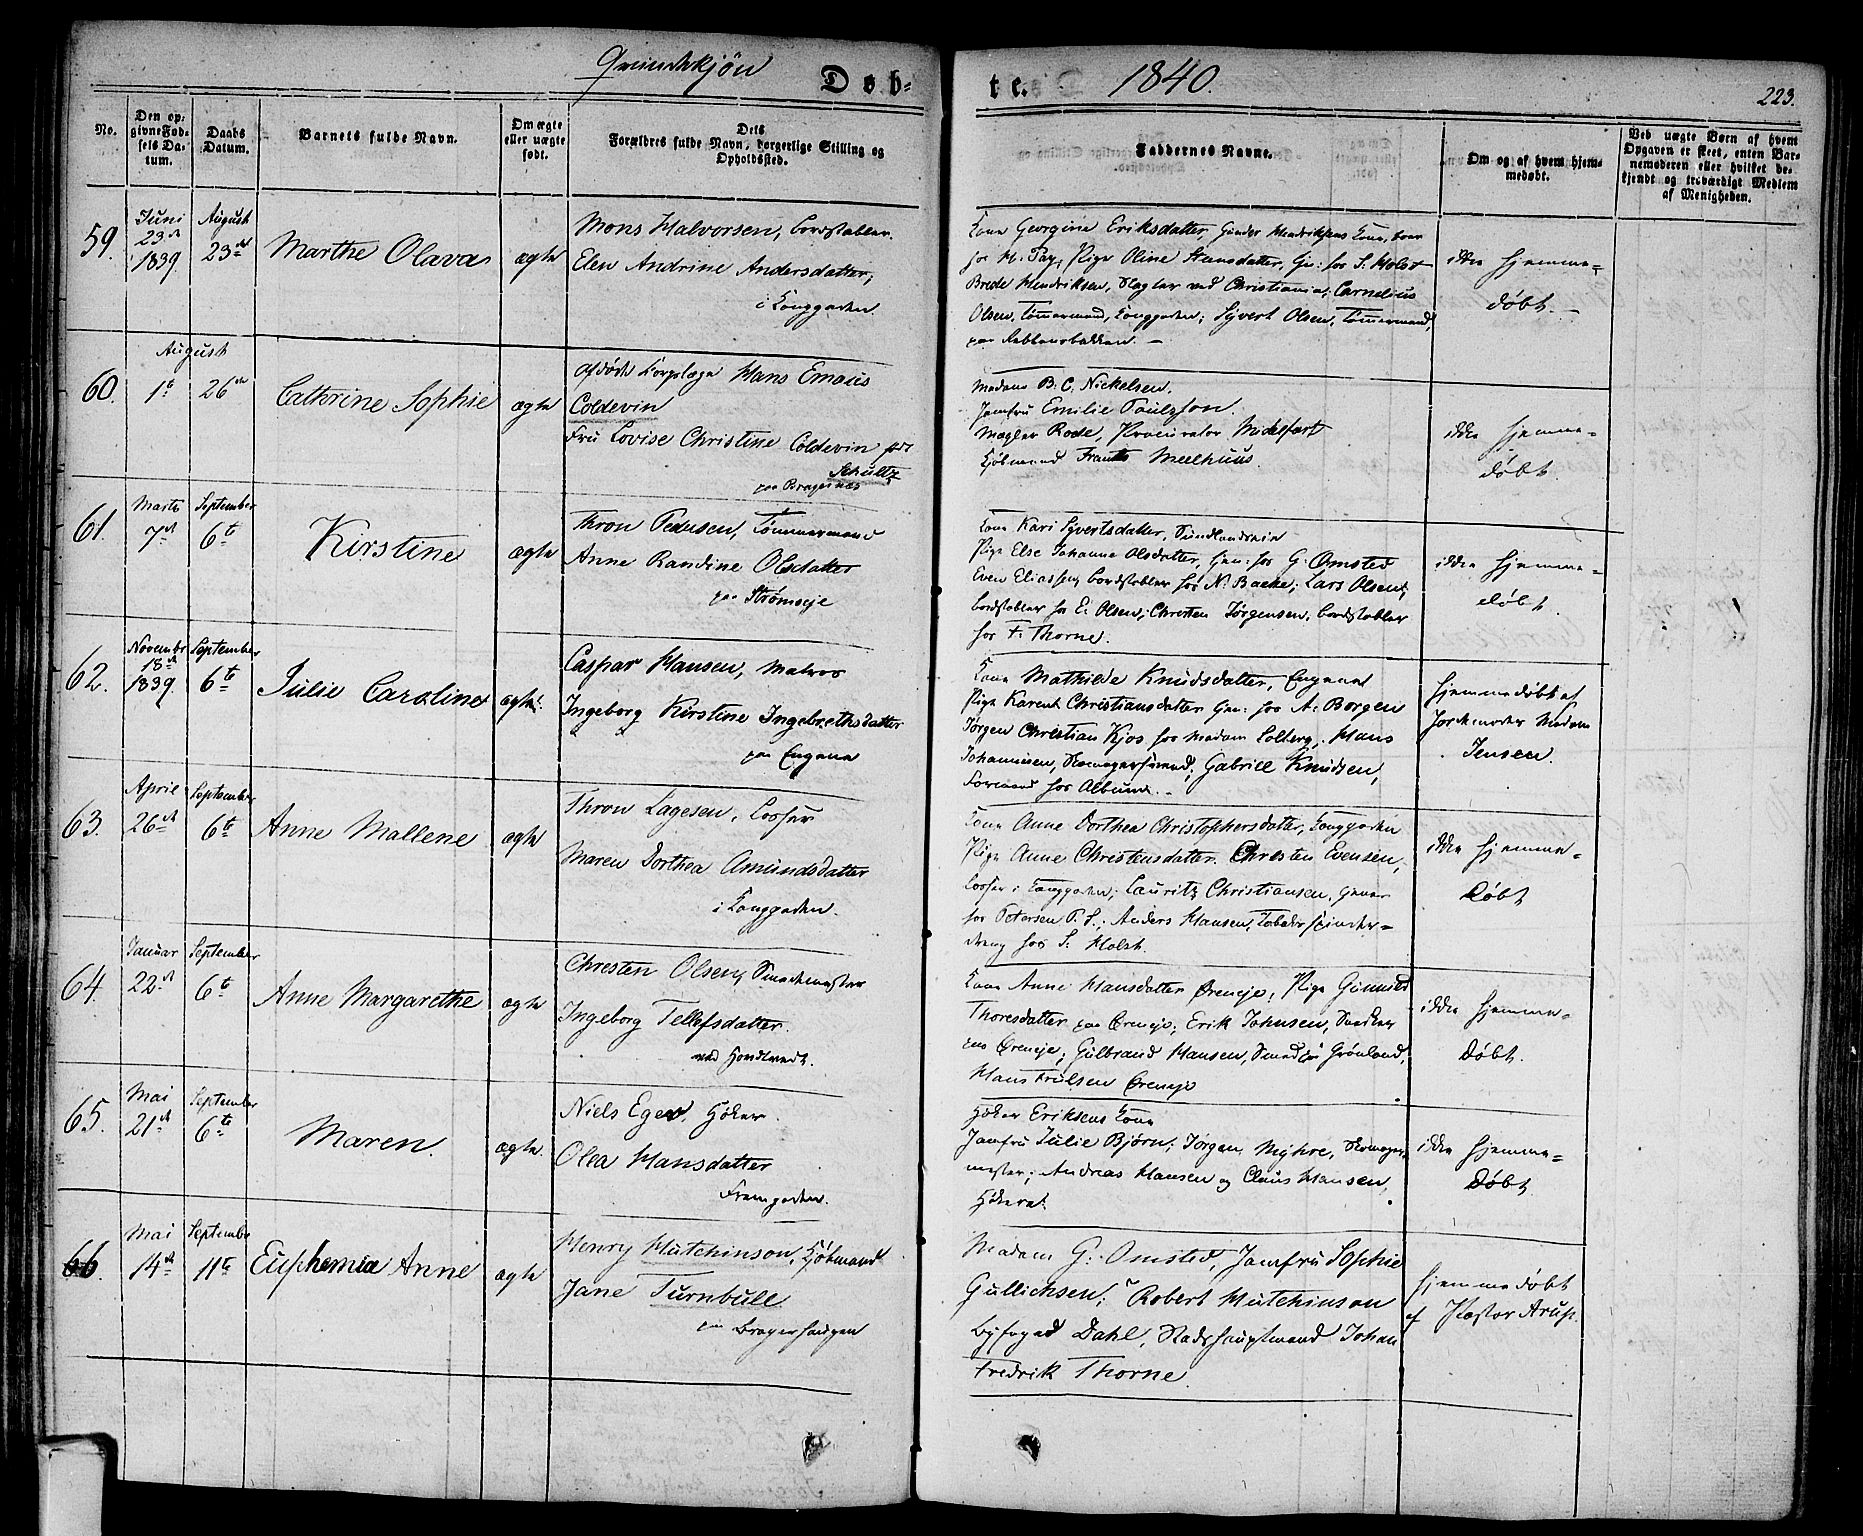 Qvindekjön
Døb-
te.
1840.
223.
No.
Den op-
givne Fød-
sels Da-
tum.
Daabs
Datum.
Barnets fulde Navn.
Om ægte
eller uægte
født.
Dets
Forældres fulde Navn, borgerlige Stilling og
Opholdssted.
Faddernes Navne.
Om og af hvem hjem-
medøbt.
Ved uægte Børn af hvem
Opgaven er skeet, enten Bar-
nemoderen eller hvilket be-
kjendt og troværdigt Medlem
af Menigheden.
59.
Juni
23de
1839.
August
23de
Marthe Olava
ægte
Mons Halvorsen, Bordstabler.
Elen Andrine Andersdatter,
i Langgaden
Kone Georgine Eriksdatter, Gunder Hendriksens Kone,
Pige Oline Hansdatter, Gj: hos S. Holst
Brede Hendriksen, Slagter ved Christiania; Cornelius
Olsen, Tømmermand, Langgaden; Syvert Olsen, Tømmermand,
paa
ikke hjemme-
døbt.
60.
August
1te
26de
Cathrine Sophie
ægte
afdøde Korpslæge Hans Emaus
Coldevin
Fru Lovise Christine Coldevin født
Schultz
paa Bragernæs
Madam B. C. Nickelsen.
Jomfru Emilie Poulsson.
Mægler Rode, Procurator Midelfart
Kjøbmand Frants Meelhuus.
ikke hjemme-
døbt.
61.
Marts
7de
September
6te
Kirstine
ægte
Thron Pedersen, Tømmermand
Anne Randine Olsdatter
paa Strømsøe
Kone Kari Syvertsdatter,
Pige Else Johanne Olsdatter, Gj: hos G. Omsted
Even Eliassen Bordstabler hos N. Backe; Lars Olsen,
Bordstabler hos E. Olsen; Christen Jørgensen, Bordstabler
hos F. Thorne.
ikke hjemme-
døbt.
62.
Novembr
18de
1839.
September
6te
Julie Caroline
ægte.
Caspar Hansen, Matros
Ingeborg Kirstine Ingebrethsdatter
paa Engene
Kone Mathilde Knudsdatter, Engene
Pige Karen Christiansdatter Gj: hos A. Borgen
Jørgen Christian Kjos hos Madam Solberg, Hans
Johannesen, Skomagersvend; Gabriel Knudsen,
Formand hos Album.
hjemmedøbt af
Jordemoder Madam
Jensen.
63.
April
26de
September
6te
Anne Mallene
ægte
Thron Lagesen, Losser
Maren Dorthea Amundsdatter
i Langgaden.
Kone Anne Dorthea Christophersdatter, Langgaden
Pige Anne Christensdatter. Christen Evensen,
Losser i Langgaden; Lauritz Christiansen,
hos Petersen P. S.; Anders Hansen, Tobakspinder-
dreng hos S. Holst.
ikke hjemme-
Døbt
64.
Januar
22de
September
6te
Anne Margarethe
ægte
Christen Olsen,
Ingeborg Tellefsdatter.
ved
Kone Anne Hansdatter Øreneje, Pige Gunnild
Thoresdatter paa Øreneje; Erik Johnsen, Snedker
paa Øreneje; Gulbrand Hansen, Smed paa Grønland,
Hans Trulsen Øreneje
ikke hjemme-
Døbt.
65.
Mai
21de
September
6te
Maren.
ægte.
Niels Eger, Høker.
Olea Hansdatter
Fremgaden.
Høker Eriksens Kone
Jomfru Julie Bjørn; Jørgen Myhre, Skomager-
mester; Andreas Hansen og Claus Hansen,
Høkere.
ikke hjemme-
Døbt
66.
Mai
14de
September
11te
Euphemia Anne
ægte
Henry Hutchinson, Kjøbmand
Jane Turnbull
paa Bragerhaugen
Madam G. Omsted, Jomfru Sophie
Gullichsen; Robert Hutchinson
Byfoged Dahl, Stadshauptmand Johan
Fredrik Thorne
hjemmedøbt
af Pastor Arup.